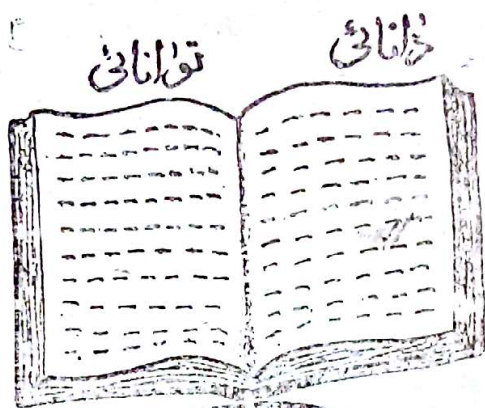 دانائی توانائی